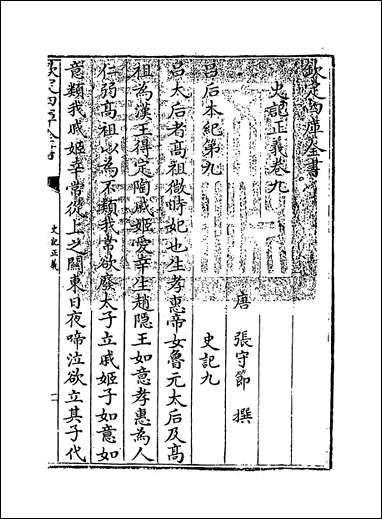 欽定四庫全書
史記正義卷九
唐 張守節 撰
呂后本紀第九
史記九
呂太后者髙祖微時妃也生孝惠帝女魯元太后及髙
祖為漢王得定陶戚姬愛幸生趙隠王如意孝惠為人
仁弱髙祖以為不類我常欲廢太子立戚姬子如意如
意類我戚姬幸常從上之闗東日夜啼泣欲立其子代
欽定四庫全書
史記正義